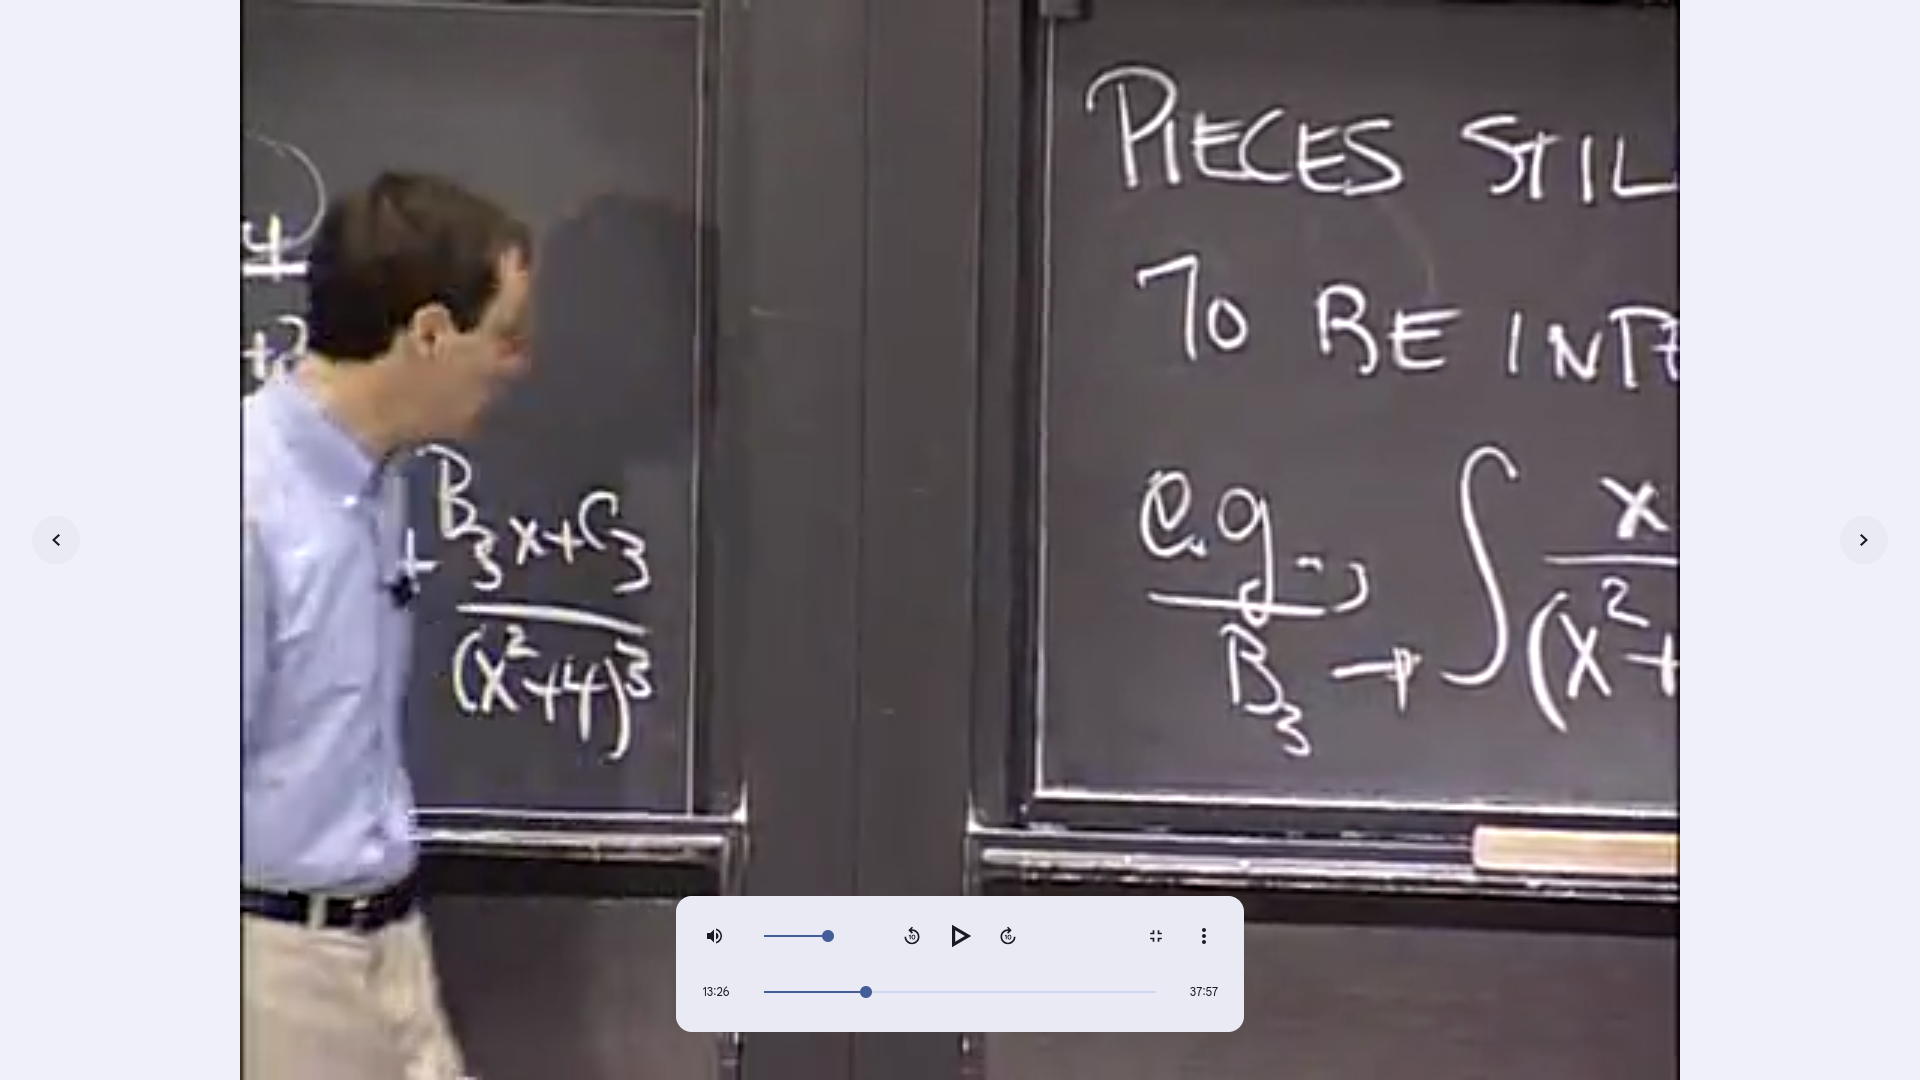 4
+2
+ B₃x+C₃
(x²+4)³
PIECES STIL
TO BE INTE
e.g.,
B₃ → ∫ x
(x²+
10
10
13:26
37:57